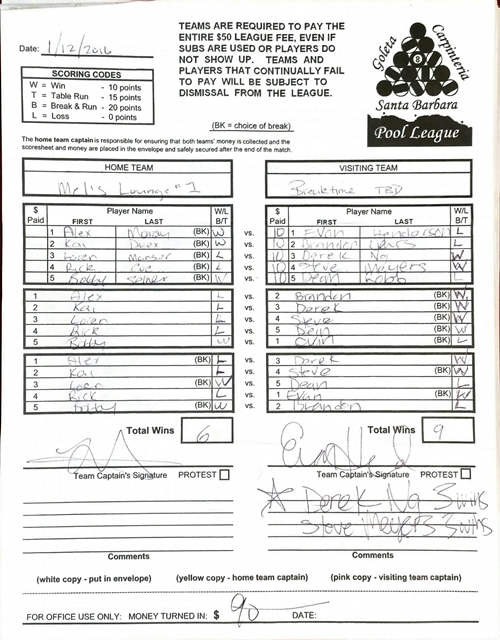 Date: 1/12/2016
TEAMS ARE REQUIRED TO PAY THE
ENTIRE $50 LEAGUE FEE, EVEN IF
SUBS ARE USED OR PLAYERS DO
NOT SHOW UP. TEAMS AND
PLAYERS THAT CONTINUALLY FAIL
TO PAY WILL BE SUBJECT TO
DISMISSAL FROM THE LEAGUE.
SCORING CODES
W = Win - 10 points
T = Table Run - 15 points
B = Break & Run - 20 points
L = Loss - 0 points
(BK = choice of break)
Goleta Carpinteria
8
Santa Barbara
Pool League
The home team captain is responsible for ensuring that both teams' money is collected and the
scoresheet and money are placed in the envelope and safely secured after the end of the match.
HOME TEAM VISITING TEAM
Mel's Lounge #1 Breaktime TBD
$ Paid Player Name FIRST LAST W/L B/T $ Paid Player Name FIRST LAST W/L B/T
1 Alex (BK) W vs. 10 1 Evan Henderson L
2 Kai (BK) W vs. 10 2 Brandon L
3 (BK) L vs. 10 3 Derek Ng W
4 Rick (BK) L vs. 10 4 Steve Meyers W
5 Bobby (BK) W vs. 10 5 Dean L
1 Alex L vs. 2 Brandon (BK) W
2 Kai L vs. 3 Derek (BK) W
3 L vs. 4 Steve (BK) W
4 Rick L vs. 5 Dean (BK) W
5 Bobby W vs. 1 Evan (BK) L
1 Alex (BK) L vs. 3 Derek W
2 Kai L vs. 4 Steve (BK) W
3 (BK) W vs. 5 Dean L
4 Rick L vs. 1 Evan (BK) W
5 Bobby (BK) W vs. 2 Brandon L
Total Wins 6 Total Wins 9
Team Captain's Signature PROTEST Team Captain's Signature PROTEST
Derek Ng 3 wins
Steve Meyers 3 wins
Comments Comments
(white copy - put in envelope) (yellow copy - home team captain) (pink copy - visiting team captain)
FOR OFFICE USE ONLY: MONEY TURNED IN: $ 90 DATE: